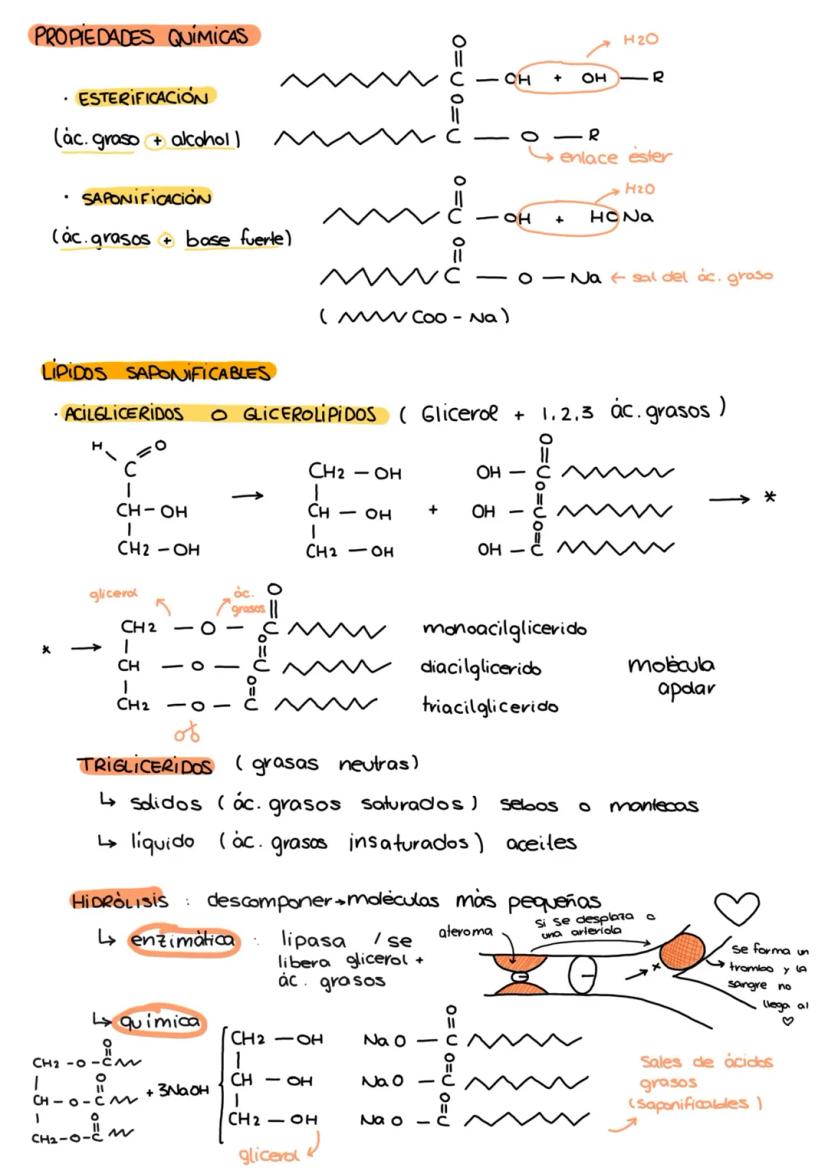 PROPIEDADES QUÍMICAS
H2O
O
C — OH + OH — R
· ESTERIFICACIÓN
(ác. graso + alcohol)
O
C — O — R
↳ enlace éster
· SAPONIFICACIÓN
(ác. grasos + base fuerte)
H2O
O
C — OH + HONa
O
C — O — Na ← sal del ác. graso
( COO - Na )
LÍPIDOS SAPONIFICABLES
· ACILGLICERIDOS O GLICEROLÍPIDOS ( Glicerol + 1, 2, 3 ác. grasos )
H O
C
CH - OH
CH2 - OH
→
CH2 — OH
CH — OH
CH2 — OH
+
O
OH — C
O
OH — C
O
OH — C
→ *
glicerol
ác. grasos
* →
O
CH2 — O — C
monoacilglicerido
O
CH — O — C
diacilglicerido
O
CH2 — O — C
triacilglicerido
molécula
apolar
TRIGLICERIDOS ( grasas neutras)
↳ sólidos ( ác. grasos saturados ) sebos o mantecas
↳ líquido ( ác. grasos insaturados ) aceites
HIDRÓLISIS : descomponer → moléculas más pequeñas
↳ enzimática : lipasa / se
libera glicerol +
ác. grasos
ateroma
si se desplaza a
una arteriola
→ *
se forma un
trombo y la
sangre no
llega al
♡
↳ química
O
CH2 - O - C
O
CH - O - C
O
CH2 - O - C
+ 3NaOH
CH2 — OH
CH — OH
CH2 — OH
glicerol
O
Na O — C
O
Na O — C
O
Na O — C
Sales de ácidos
grasos
(saponificables)